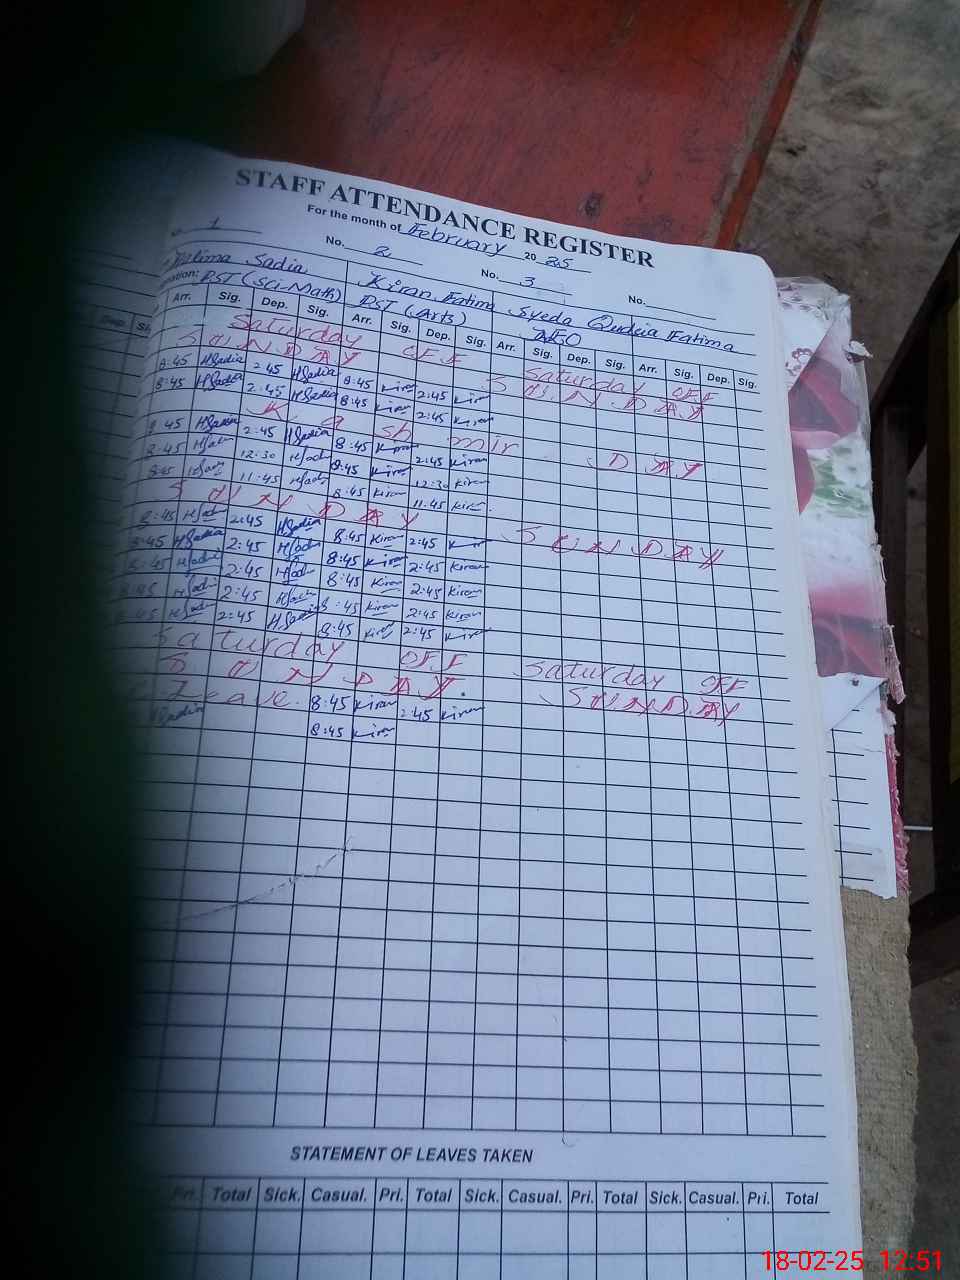 STAFF ATTENDANCE REGISTER
For the month of February 2025
1 No. 2 No. 3 No.
Fatima Sadia Kiran Fatima Syeda Qudsia Fatima
PST (Sci-Math) PST (Arts)
Arr. Sig. Dep. Sig. Arr. Sig. Dep. Sig. Arr. Sig. Dep. Sig. Arr. Sig. Dep. Sig.
Saturday OFF Saturday OFF
SUNDAY SUNDAY
8:45 HSadia 2:45 HSadia 8:45 Kiran 2:45 Kiran
8:45 HSadia 2:45 HSadia 8:45 Kiran 2:45 Kiran
Kashmir DAY
8:45 HSadia 2:45 HSadia 8:45 Kiran 2:45 Kiran
8:45 12:30 8:45 Kiran 12:30 Kiran
8:45 11:45 8:45 Kiran 11:45 Kiran
SUNDAY SUNDAY
8:45 2:45 HSadia 8:45 Kiran 2:45 Kiran
8:45 HSadia 2:45 8:45 Kiran 2:45 Kiran
8:45 2:45 8:45 Kiran 2:45 Kiran
8:45 2:45 8:45 Kiran 2:45 Kiran
8:45 2:45 HSadia 8:45 Kiran 2:45 Kiran
Saturday OFF Saturday OFF
SUNDAY. SUNDAY
Leave. 8:45 Kiran 2:45 Kiran
HSadia 8:45 Kiran
STATEMENT OF LEAVES TAKEN
Pri. Total Sick. Casual. Pri. Total Sick. Casual. Pri. Total Sick. Casual. Pri. Total
18-02-25 12:51